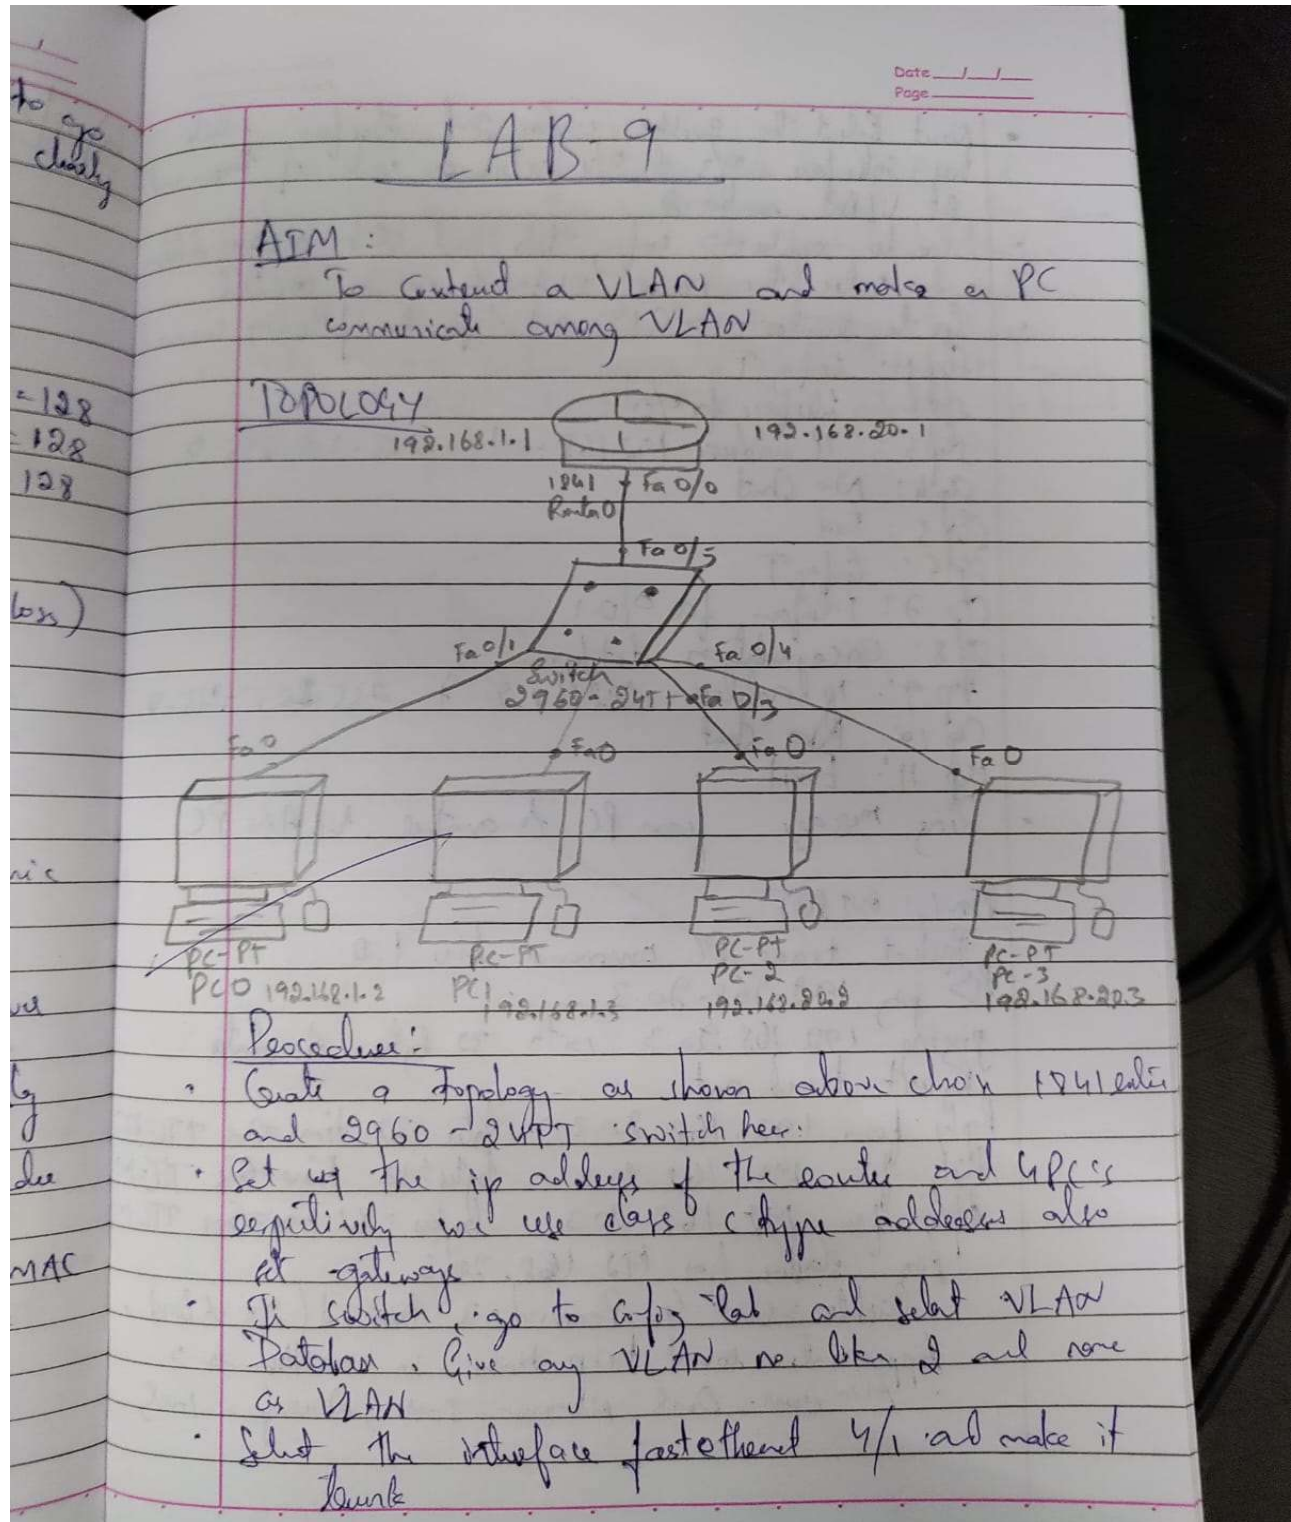 Date
Page
to go
clearly
LAB-9
AIM :
To Contend a VLAN and make a PC
communicate among VLAN
= 128
= 128
128
TOPOLOGY
192.168.1.1
192.168.20.1
1841
Fa 0/0
Router0
Fa 0/5
loss)
Fa 0/1
Fa 0/4
Switch
2960-24TT
Fa 0/3
Fa 0
Fa0
Fa 0
Fa 0
PC-PT
PC0 192.168.1.2
PC-PT
PC1
192.168.1.3
PC-PT
PC-2
192.168.20.2
PC-PT
PC-3
192.168.20.3
MAC
Procedure:
• Create a Topology as shown above 1841
and 2960-24PT switch here.
• Set up the ip address of the router and 4 PC's
we use class C type addresses also
set gateways
• In switch, go to config tab and select VLAN
Database. Give any VLAN no. like 2 and name
as VLAN
• Select the interface fastethernet 4/1 and make it
trunk